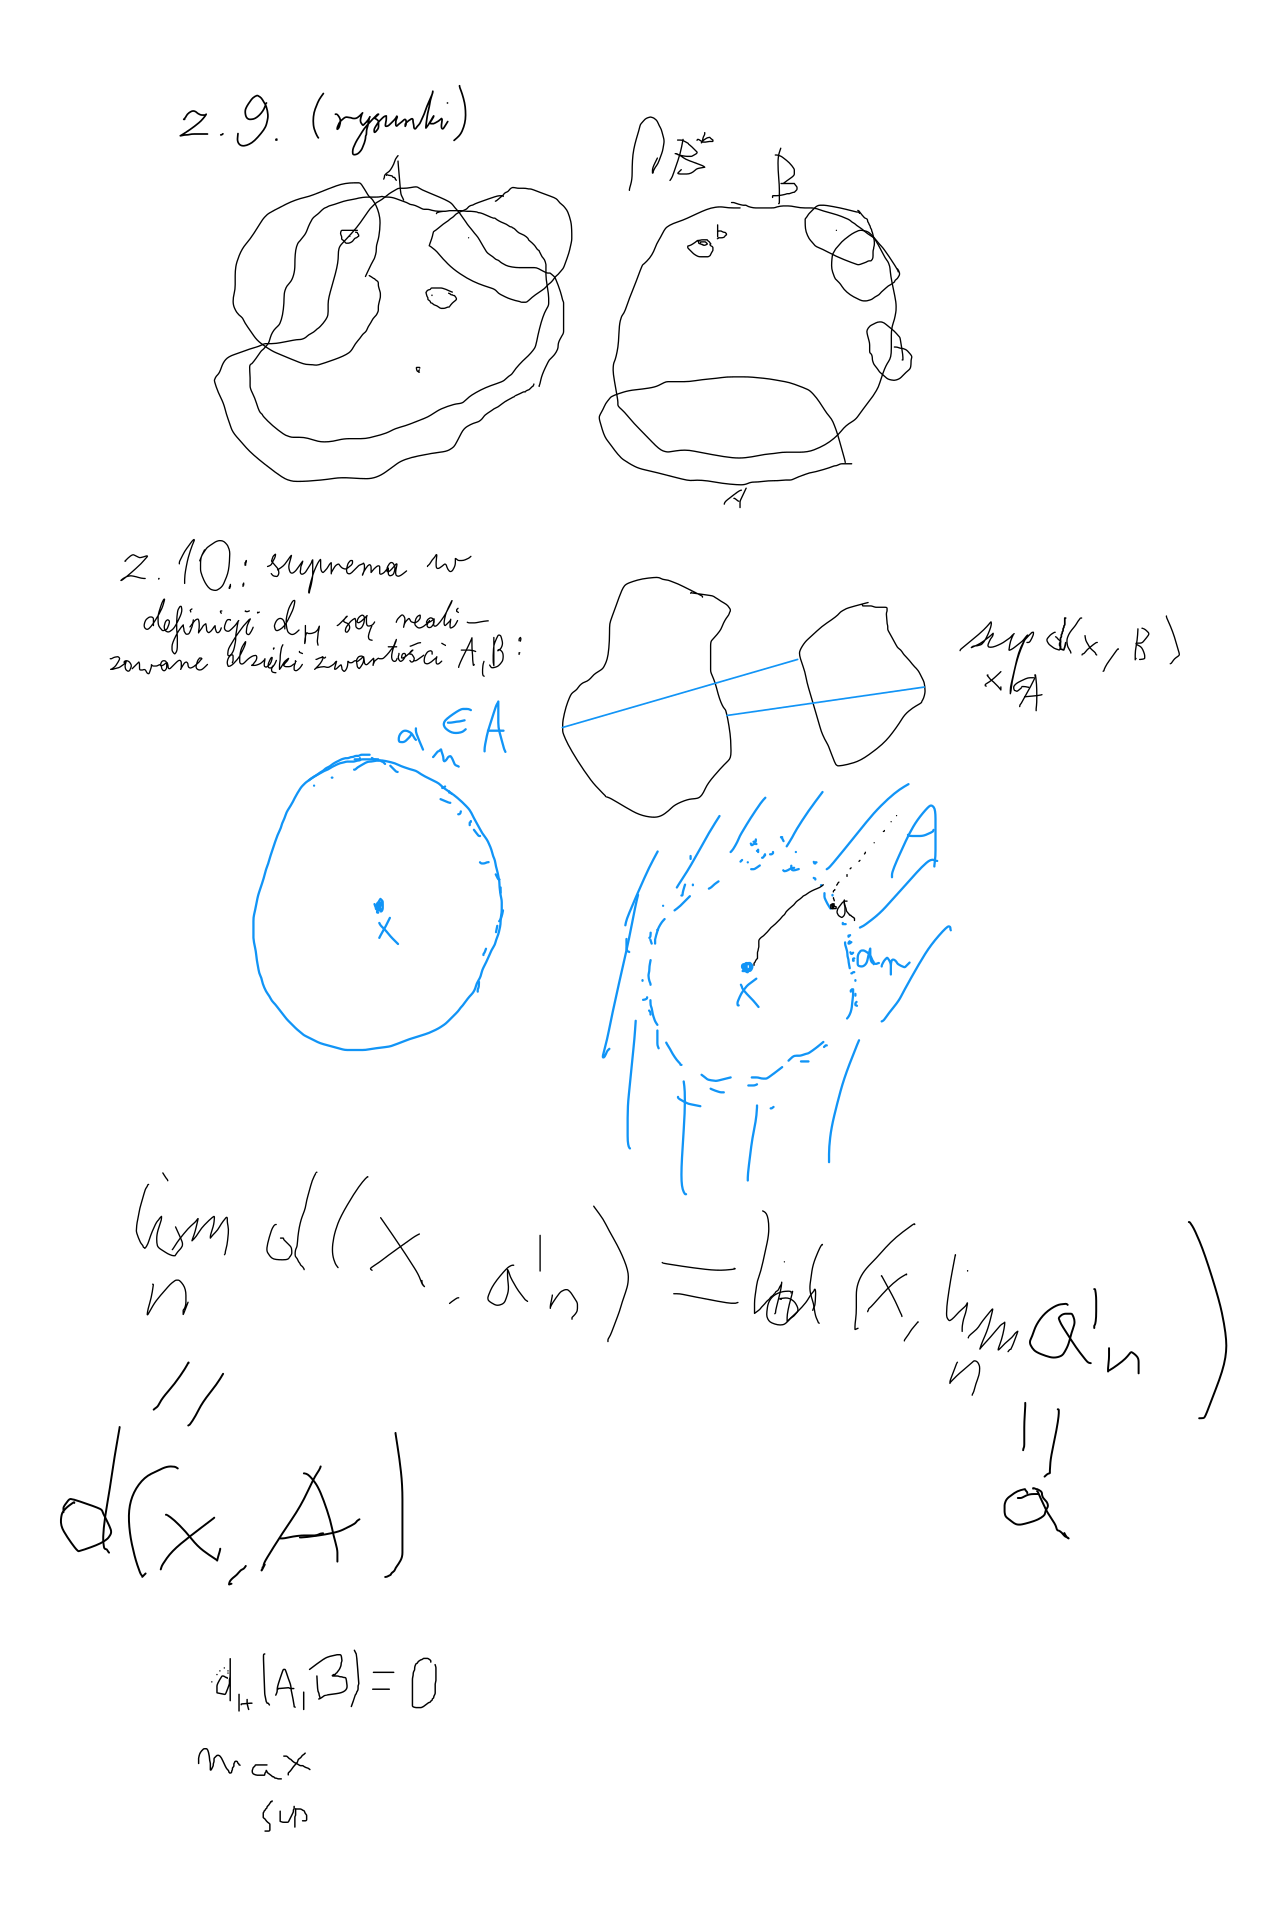 z.9. (rysunki)
A
⋂B*
B
b
A
z.10.: suprema w
definicji d_H są reali-
zowane dzięki zwartości A,B:
sup d(x, B)
x∈A
a_n ∈ A
x
A
a
a_n
x
lim d(x, a'_n) = d(x, lim a'_n)
n
n
=
=
d(x, A)
a
d_H(A,B)=0
max
sup